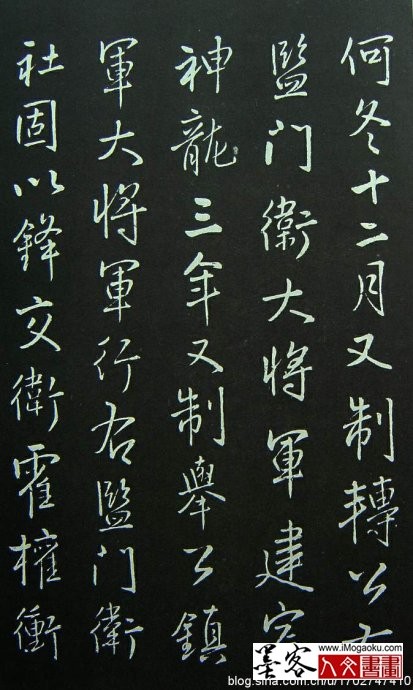 何冬十二月又制轉公
監門衛大將軍建
神龍三年又制舉公鎮
軍大將軍行右監門衛
社固以鋒交衛霍權衝
墨客
www.iMogaoku.com
人文書畫
blog.sina.com.cn/u/1702747410